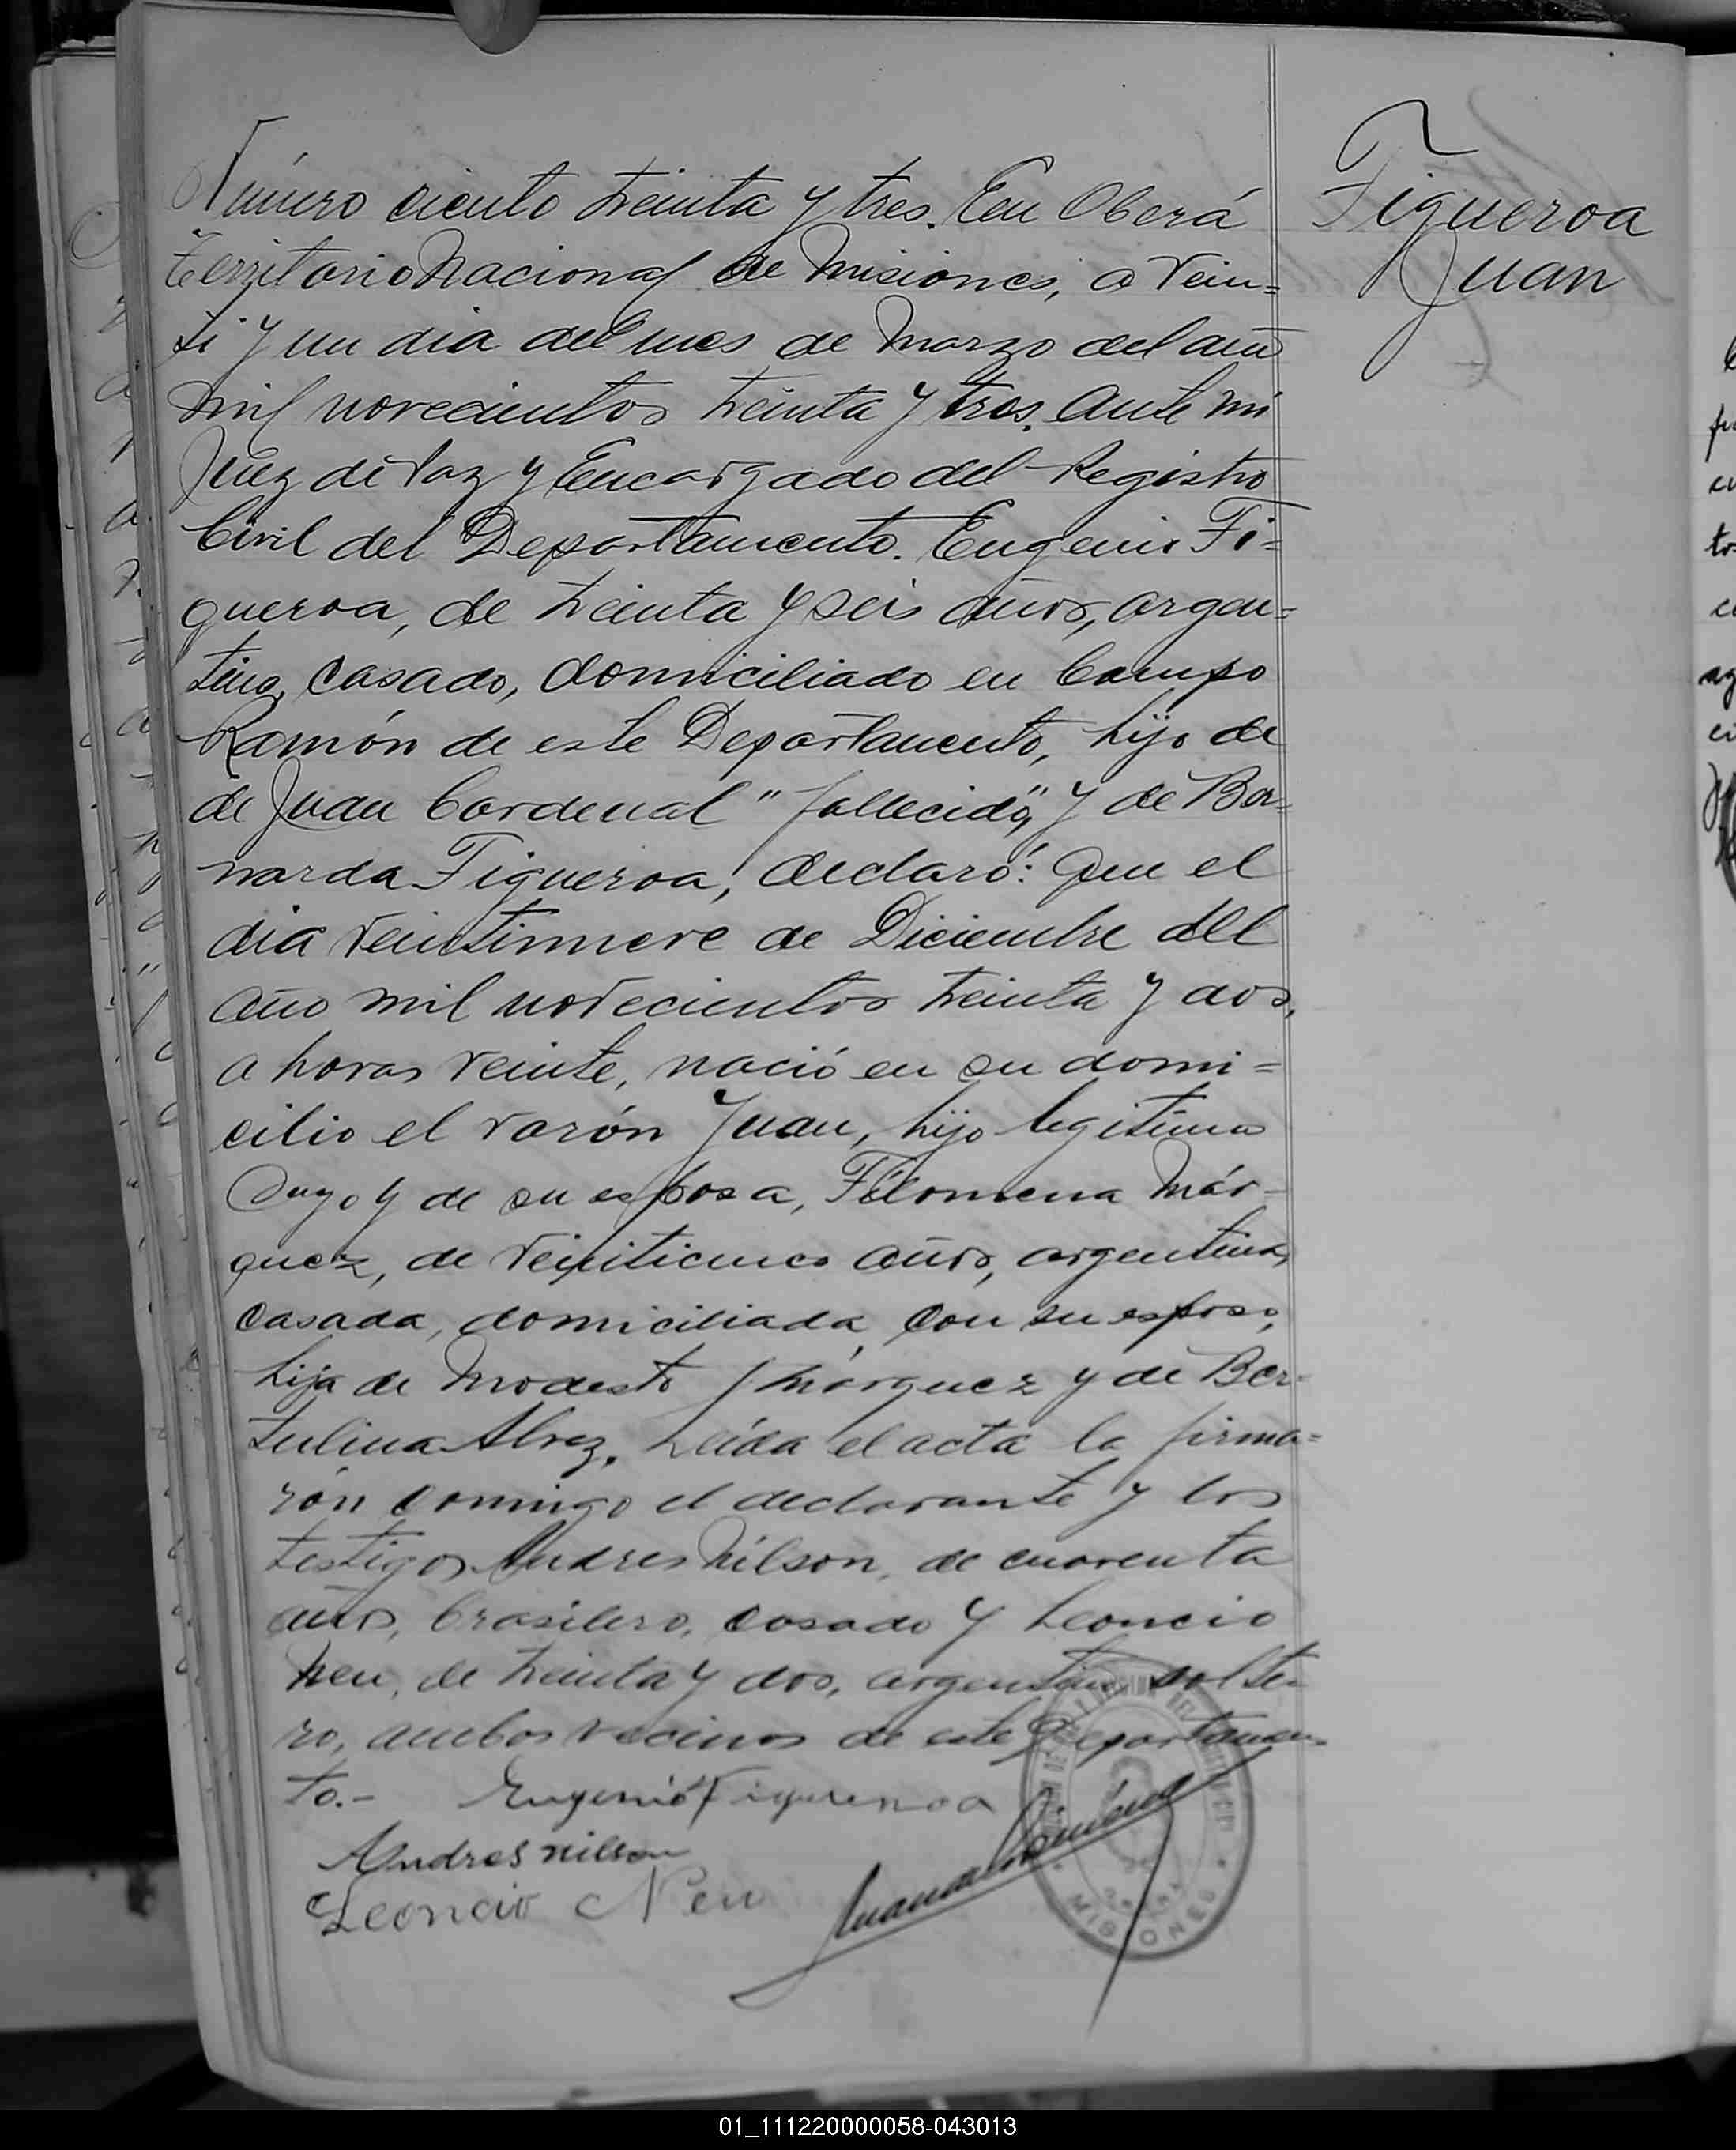 Número ciento treinta y tres. En Oberá
Territorio Nacional de Misiones, a Vein=
ti y un dia del mes de Marzo del año
mil novecientos treinta y tres. Ante mi
Juez de Paz y Encargado del Registro
Civil del Departamento. Eugenio Fi=
gueroa, de treinta y seis años, argen=
tino, casado, domiciliado en Campo
Ramón de este Departamento, hijo de
de Juan Cardenal "fallecido", y de Ber=
narda Figueroa, declaró: Que el
dia veintinueve de Diciembre del
año mil novecientos treinta y dos,
a horas veinte, nació en su domi=
cilio el varón Juan, hijo legitimo
suyo y de su esposa, Filomena Már=
quez, de veinticinco años, argentina,
casada, domiciliada con su esposo,
hija de Modesto Márquez y de Ber=
tulina Alvez. Leída el acta la firma=
rón conmigo el declarante y los
testigos Andres Nilson, de cuarenta
años, brasilero, casado y Leoncio
Neu, de treinta y dos, argentino solte=
ro, ambos vecinos de este Departamen=
to.- Eugenio Figueroa
Andres nilson
Leoncio Neu
MISIONES
Figueroa
Juan
01_111220000058-043013